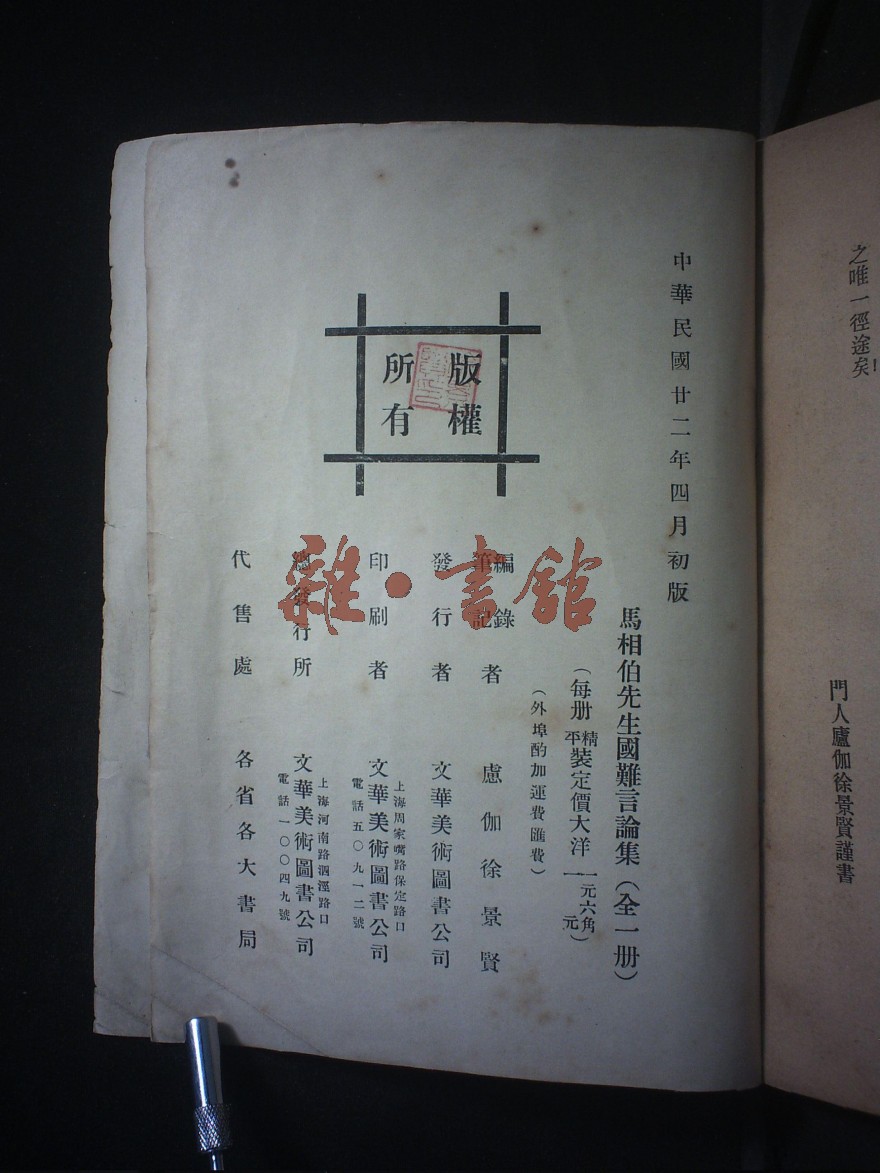 之唯一徑途矣！
門人廬伽徐景賢謹書
中華民國廿二年四月初版
馬相伯先生國難言論集（全一册）
（每册精平裝定價大洋一元六角一元）
（外埠酌加運費匯費）
編錄筆記者　盧伽徐景賢
發行者　文華美術圖書公司
印刷者　文華美術圖書公司
上海周家嘴路保定路口
電話五〇九一二號
總發行所　文華美術圖書公司
上海河南路泗涇路口
電話一〇〇四九號
代售處　各省各大書局
版權
所有
雜·書館